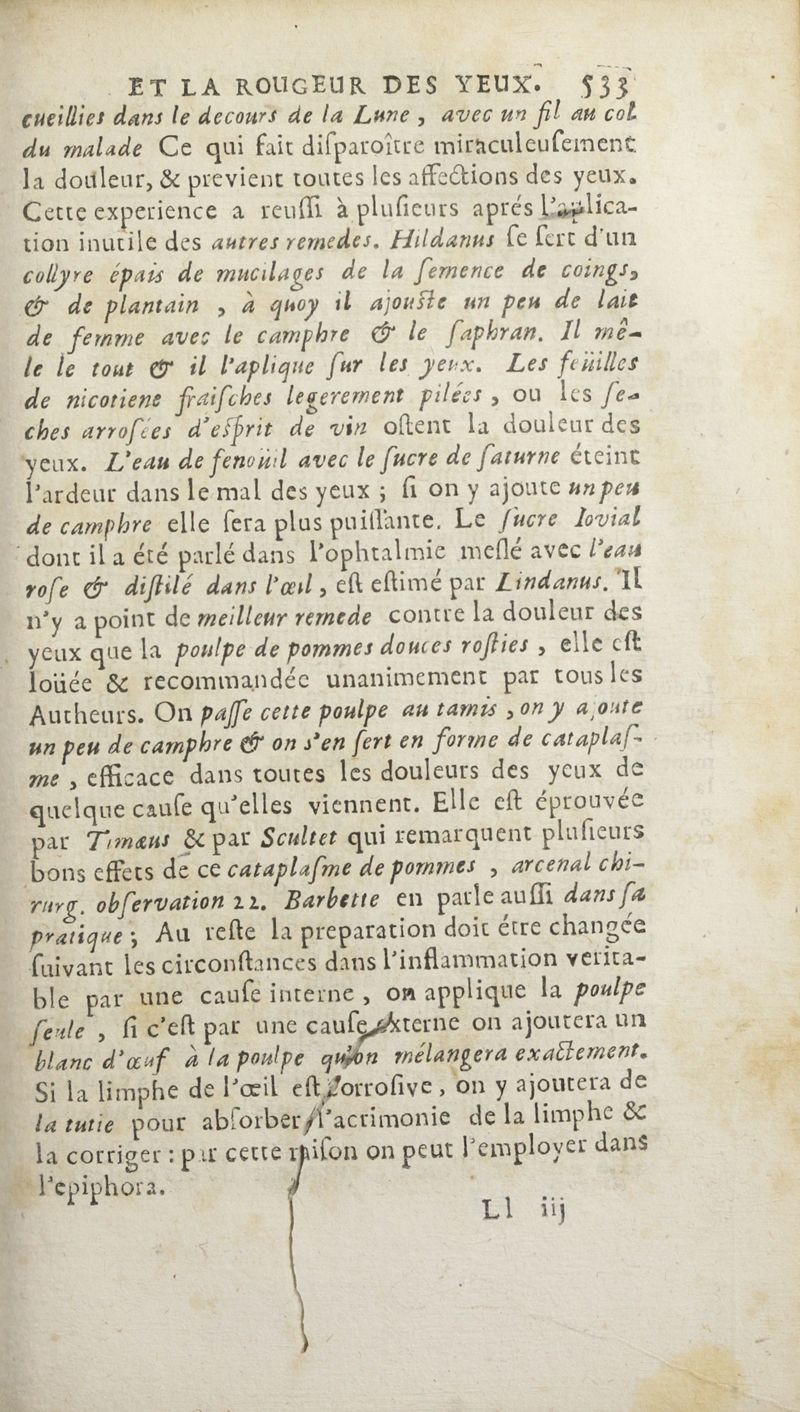 ET LA ROUGEUR DES YEUX. 533
cueillies dans le decours de la Lune, avec un fil au col
du malade Ce qui fait diſparoître miraculeuſement
la douleur, & previent toutes les affections des yeux.
Cette experience a reuſſi à pluſieurs aprés l'aplica-
tion inutile des autres remedes. Hildanus ſe ſert d'un
collyre épais de mucilages de la ſemence de coings,
& de plantain, à quoy il ajouſte un peu de lait
de femme avec le camphre & le ſaphran. Il mê-
le le tout & il l'aplique ſur les yeux. Les feüilles
de nicotiene fraiſches legerement pilées, ou les ſe-
ches arroſées d'eſprit de vin oſtent la douleur des
yeux. L'eau de fenoüil avec le ſucre de ſaturne éteint
l'ardeur dans le mal des yeux; ſi on y ajoute un peu
de camphre elle ſera plus puiſſante. Le ſucre Iovial
dont il a été parlé dans l'ophtalmie meſlé avec l'eau
roſe & diſtilé dans l'œil, eſt eſtimé par Lindanus. Il
n'y a point de meilleur remede contre la douleur des
yeux que la poulpe de pommes douces roſties, elle eſt
loüée & recommandée unanimement par tous les
Autheurs. On paſſe cette poulpe au tamis, on y ajoute
un peu de camphre & on s'en ſert en forme de cataplaſ-
me, efficace dans toutes les douleurs des yeux de
quelque cauſe qu'elles viennent. Elle eſt éprouvée
par Timæus & par Scultet qui remarquent pluſieurs
bons effets de ce cataplaſme de pommes, arcenal chi-
rurg. obſervation 22. Barbette en parle auſſi dans ſa
pratique; Au reſte la preparation doit étre changée
ſuivant les circonſtances dans l'inflammation verita-
ble par une cauſe interne, on applique la poulpe
ſeule, ſi c'eſt par une cauſe externe on ajoutera un
blanc d'œuf à la poulpe qu'on mélangera exactement.
Si la limphe de l'œil eſt corroſive, on y ajoutera de
la tutie pour abſorber l'acrimonie de la limphe &
la corriger: par cette raiſon on peut l'employer dans
l'epiphora.
Ll iij